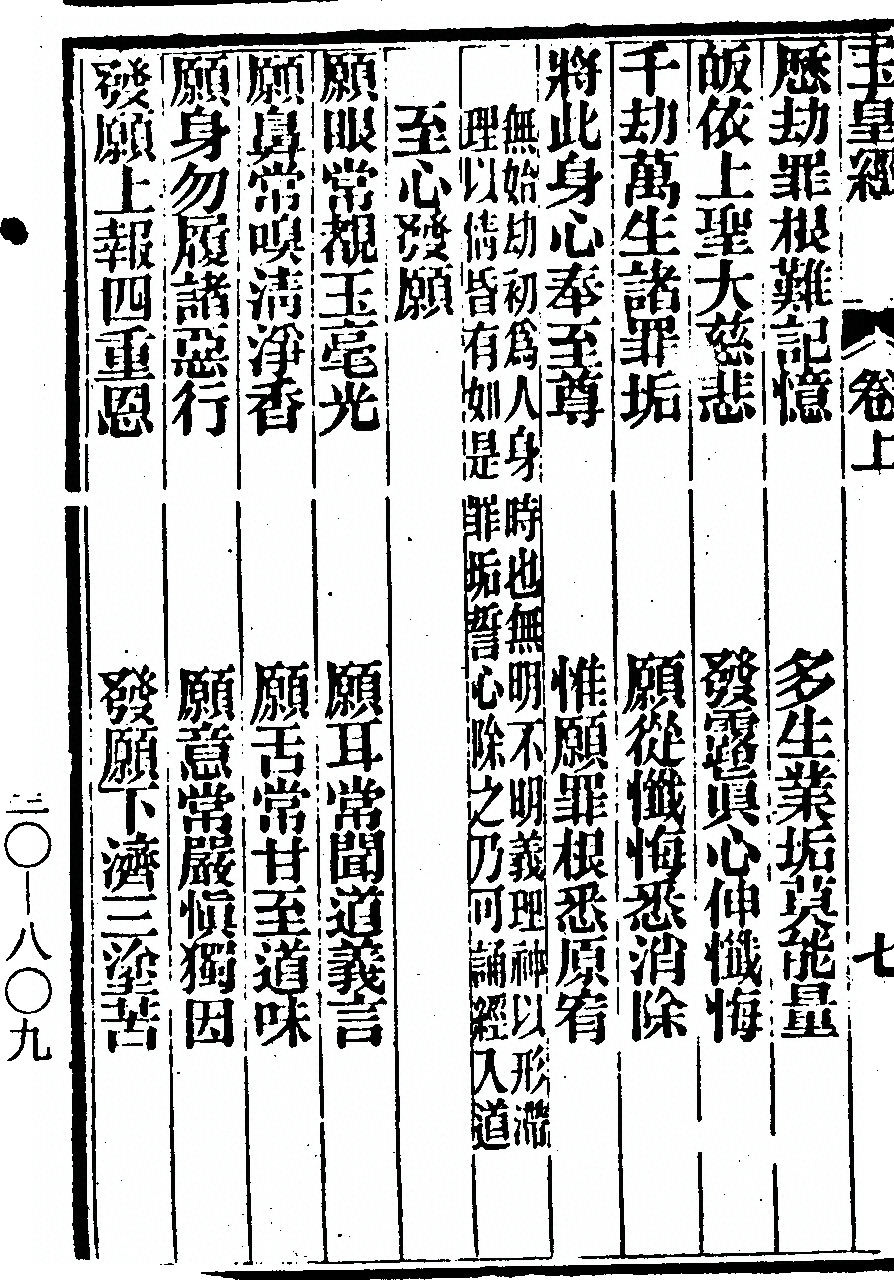 玉皇經 卷上 七
歷劫罪根難記憶 多生業垢莫能量
皈依上聖大慈悲 發露眞心伸懺悔
千劫萬生諸罪垢 願從懺悔悉消除
將此身心奉至尊 惟願罪根悉原宥
無始劫初爲人身時也無明不明義理神以形滯
理以情皆有如是罪垢誓心除之乃可誦經入道
至心發願
願眼常覩玉毫光 願耳常聞道義言
願鼻常嗅淸淨香 願舌常甘至道味
願身勿履諸惡行 願意常嚴愼獨因
發願上報四重恩 發願下濟三塗苦
二〇—八〇九